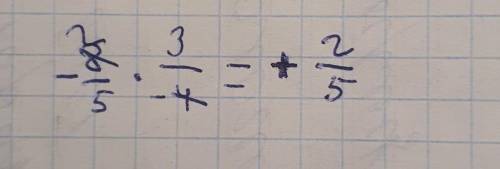 - 2/5 · 3/-4 = + 2/5